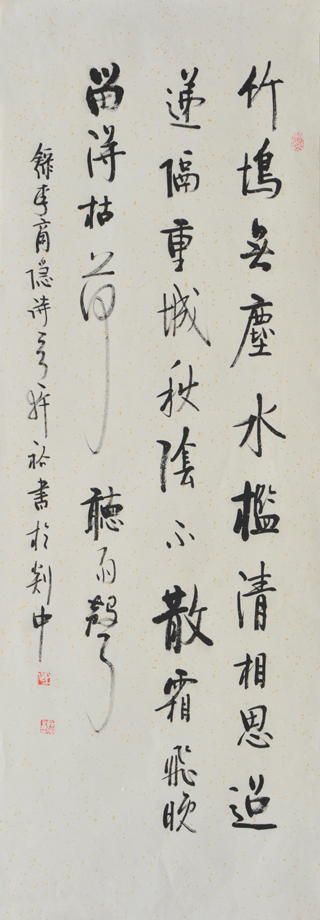 竹塢無塵水檻清相思迢
遞隔重城秋陰不散霜飛晚
留得枯荷聽雨聲
錄李商隱詩許裕書於剡中